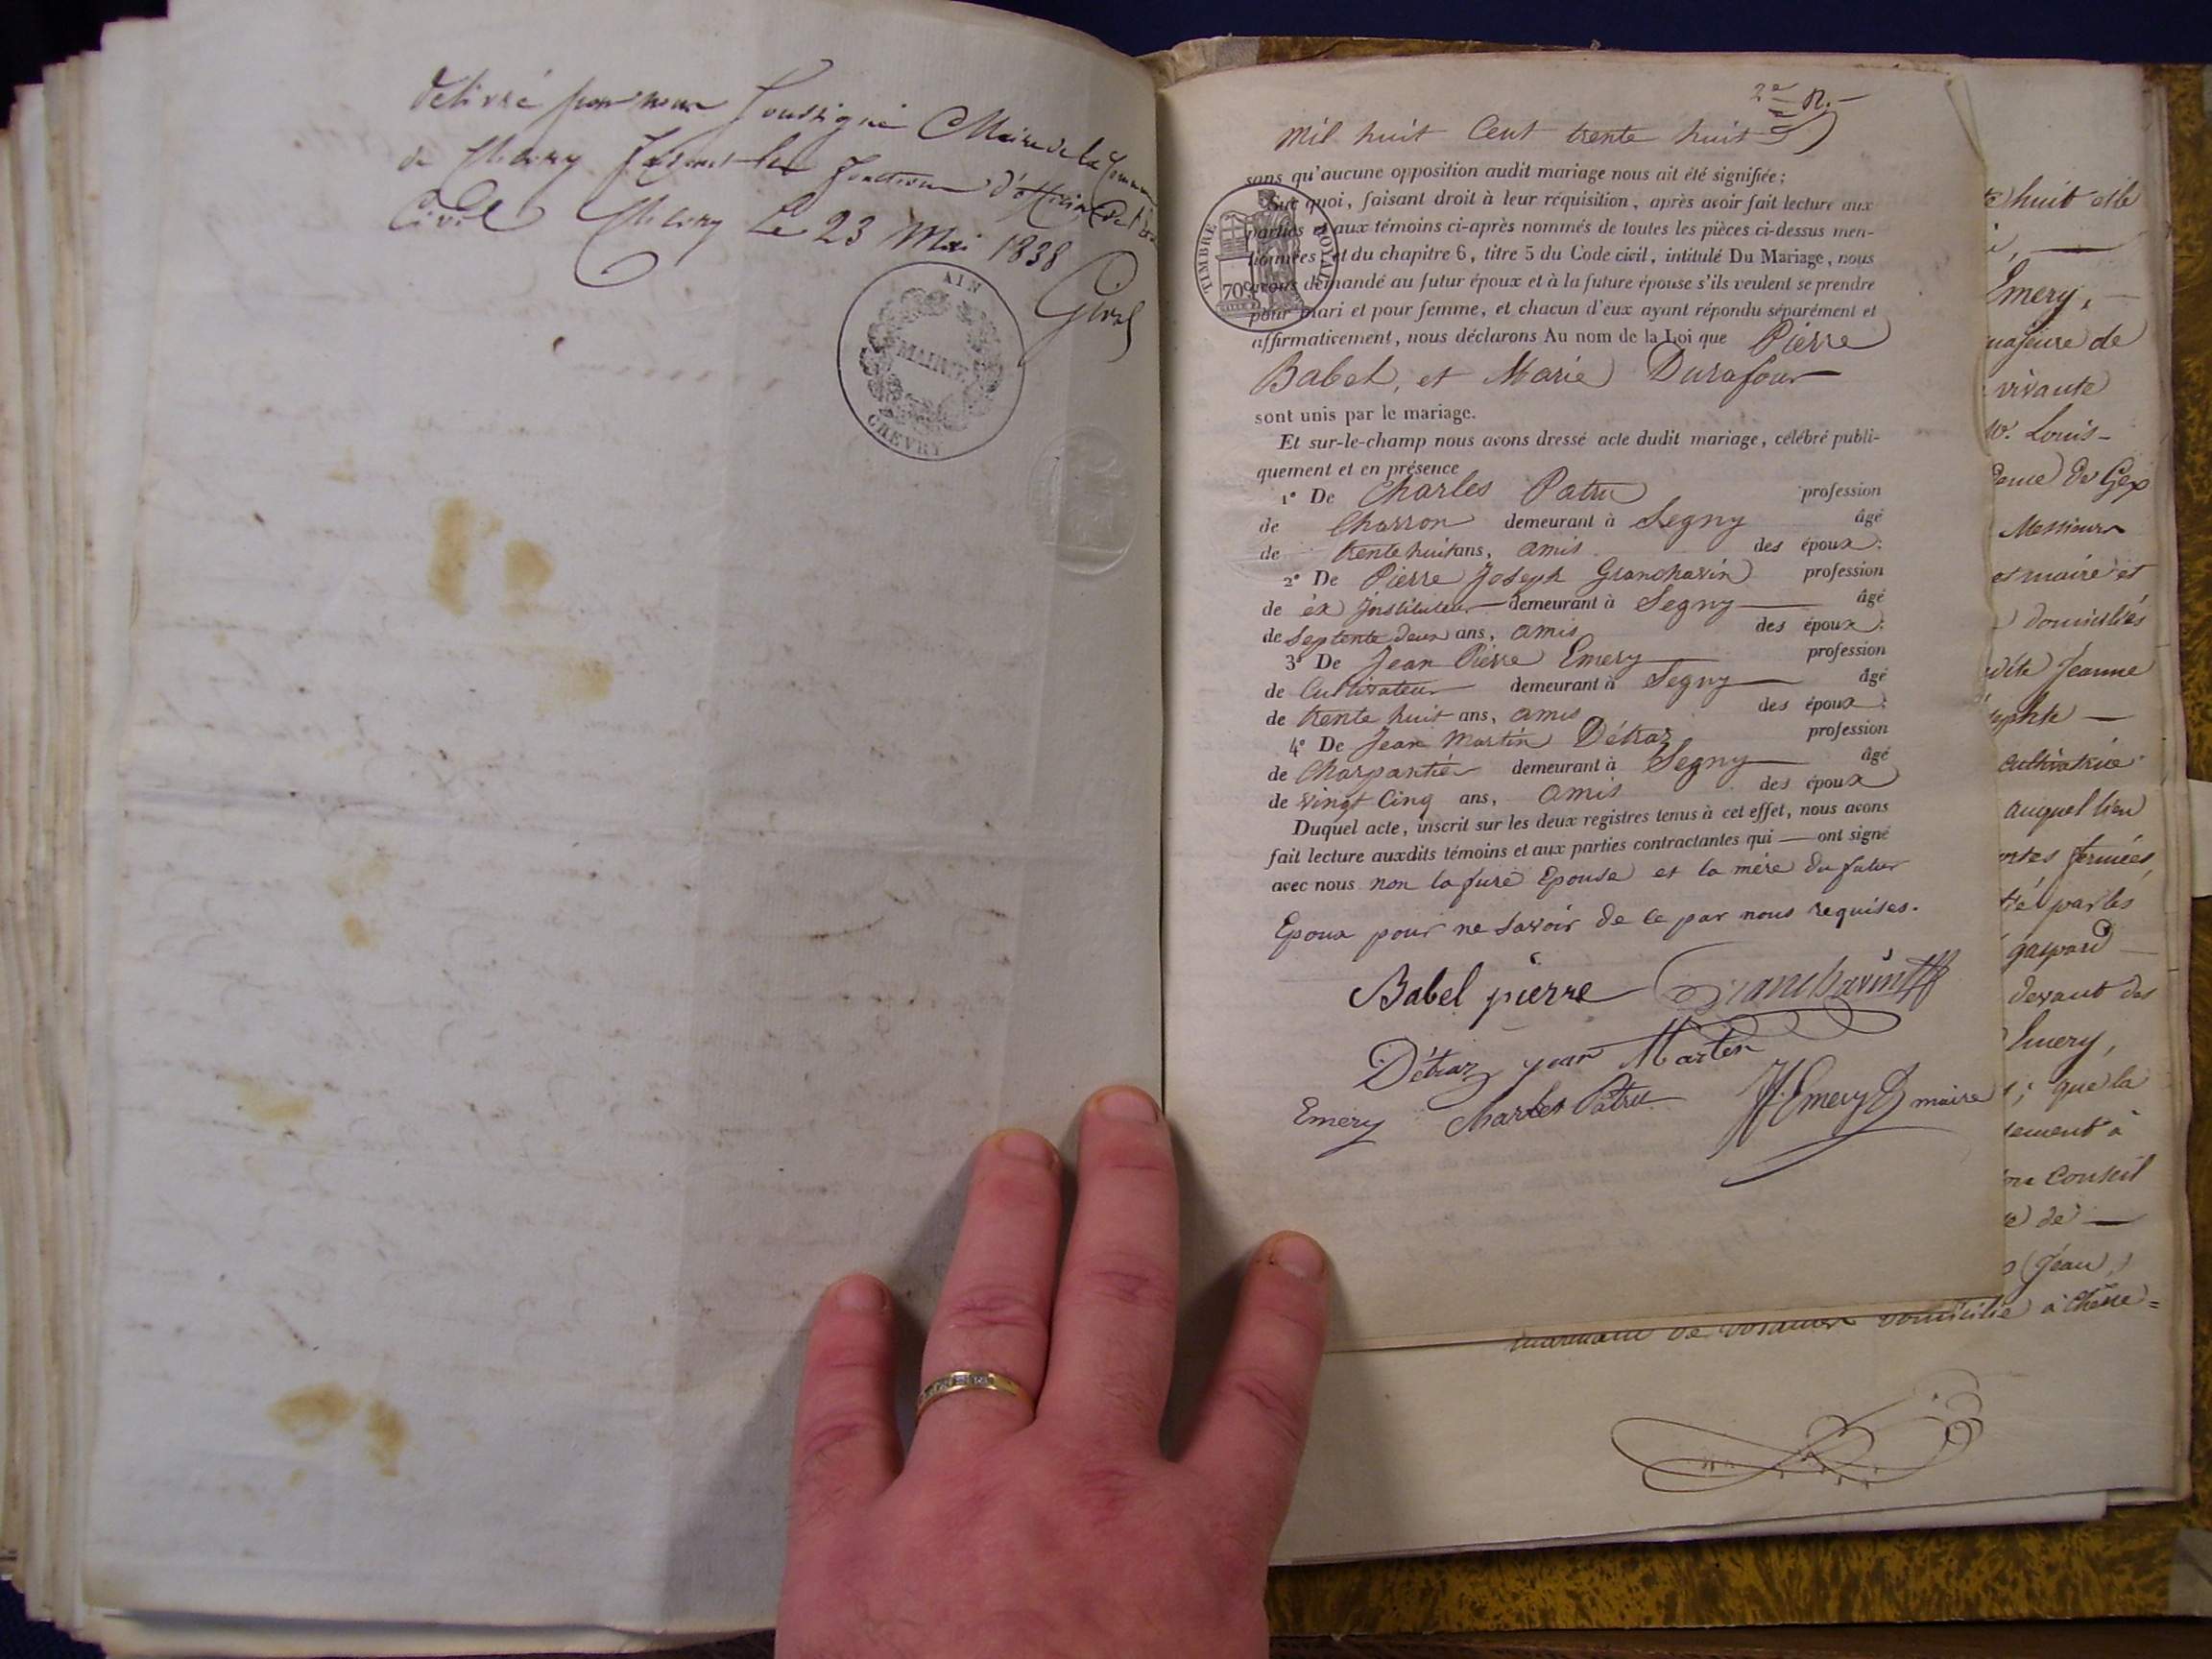 délivré par nous soussigné Maire de la Commune
de Chevry faisant les fonctions d'officier de l'état
Civil Chevry le 23 Mai 1838
AIN
MAIRIE
CHEVRY
2e
Mil huit Cent trente huit
sans qu'aucune opposition audit mariage nous ait été signifiée;
Sur quoi, faisant droit à leur réquisition, après avoir fait lecture aux
parties et aux témoins ci-après nommés de toutes les pièces ci-dessus men-
tionnées et du chapitre 6, titre 5 du Code civil, intitulé Du Mariage, nous
avons demandé au futur époux et à la future épouse s'ils veulent se prendre
pour mari et pour femme, et chacun d'eux ayant répondu séparément et
affirmativement, nous déclarons Au nom de la Loi que Pierre
Babel, et Marie Durafour
sont unis par le mariage.
Et sur-le-champ nous avons dressé acte dudit mariage, célébré publi-
quement et en présence
1° De Charles Patru profession
de Charron demeurant à Segny âgé
de trente huit ans, amis des époux;
2° De Pierre Joseph Granchavin profession
de éx jnstituteur demeurant à Segny âgé
de septente deux ans, amis des époux;
3° De Jean Pierre Emery profession
de Cultivateur demeurant à Segny âgé
de trente huit ans, amis des époux;
4° De Jean Martin Détraz profession
de Charpantier demeurant à Segny âgé
de vingt Cinq ans, amis des époux
Duquel acte, inscrit sur les deux registres tenus à cet effet, nous avons
fait lecture auxdits témoins et aux parties contractantes qui — ont signé
avec nous non la fure Epouse et la mère du futur
Epoux pour ne savoir de ce par nous requises.
Babel pierre Granchavin
Détraz jean Martin
Emery Charles Patru Emery maire
TIMBRE ROYAL
70c
huit et le
Emery,
majeure de
vivante
Louis-
de Gex
Messieurs
et maire et
domiciliés
Jeanne
cultivatrice
auquel lieu
fermées,
par les
gaspard
devant des
Emery,
; que la
à
conseil
de
(Jean,)
domicilié à Chesse=